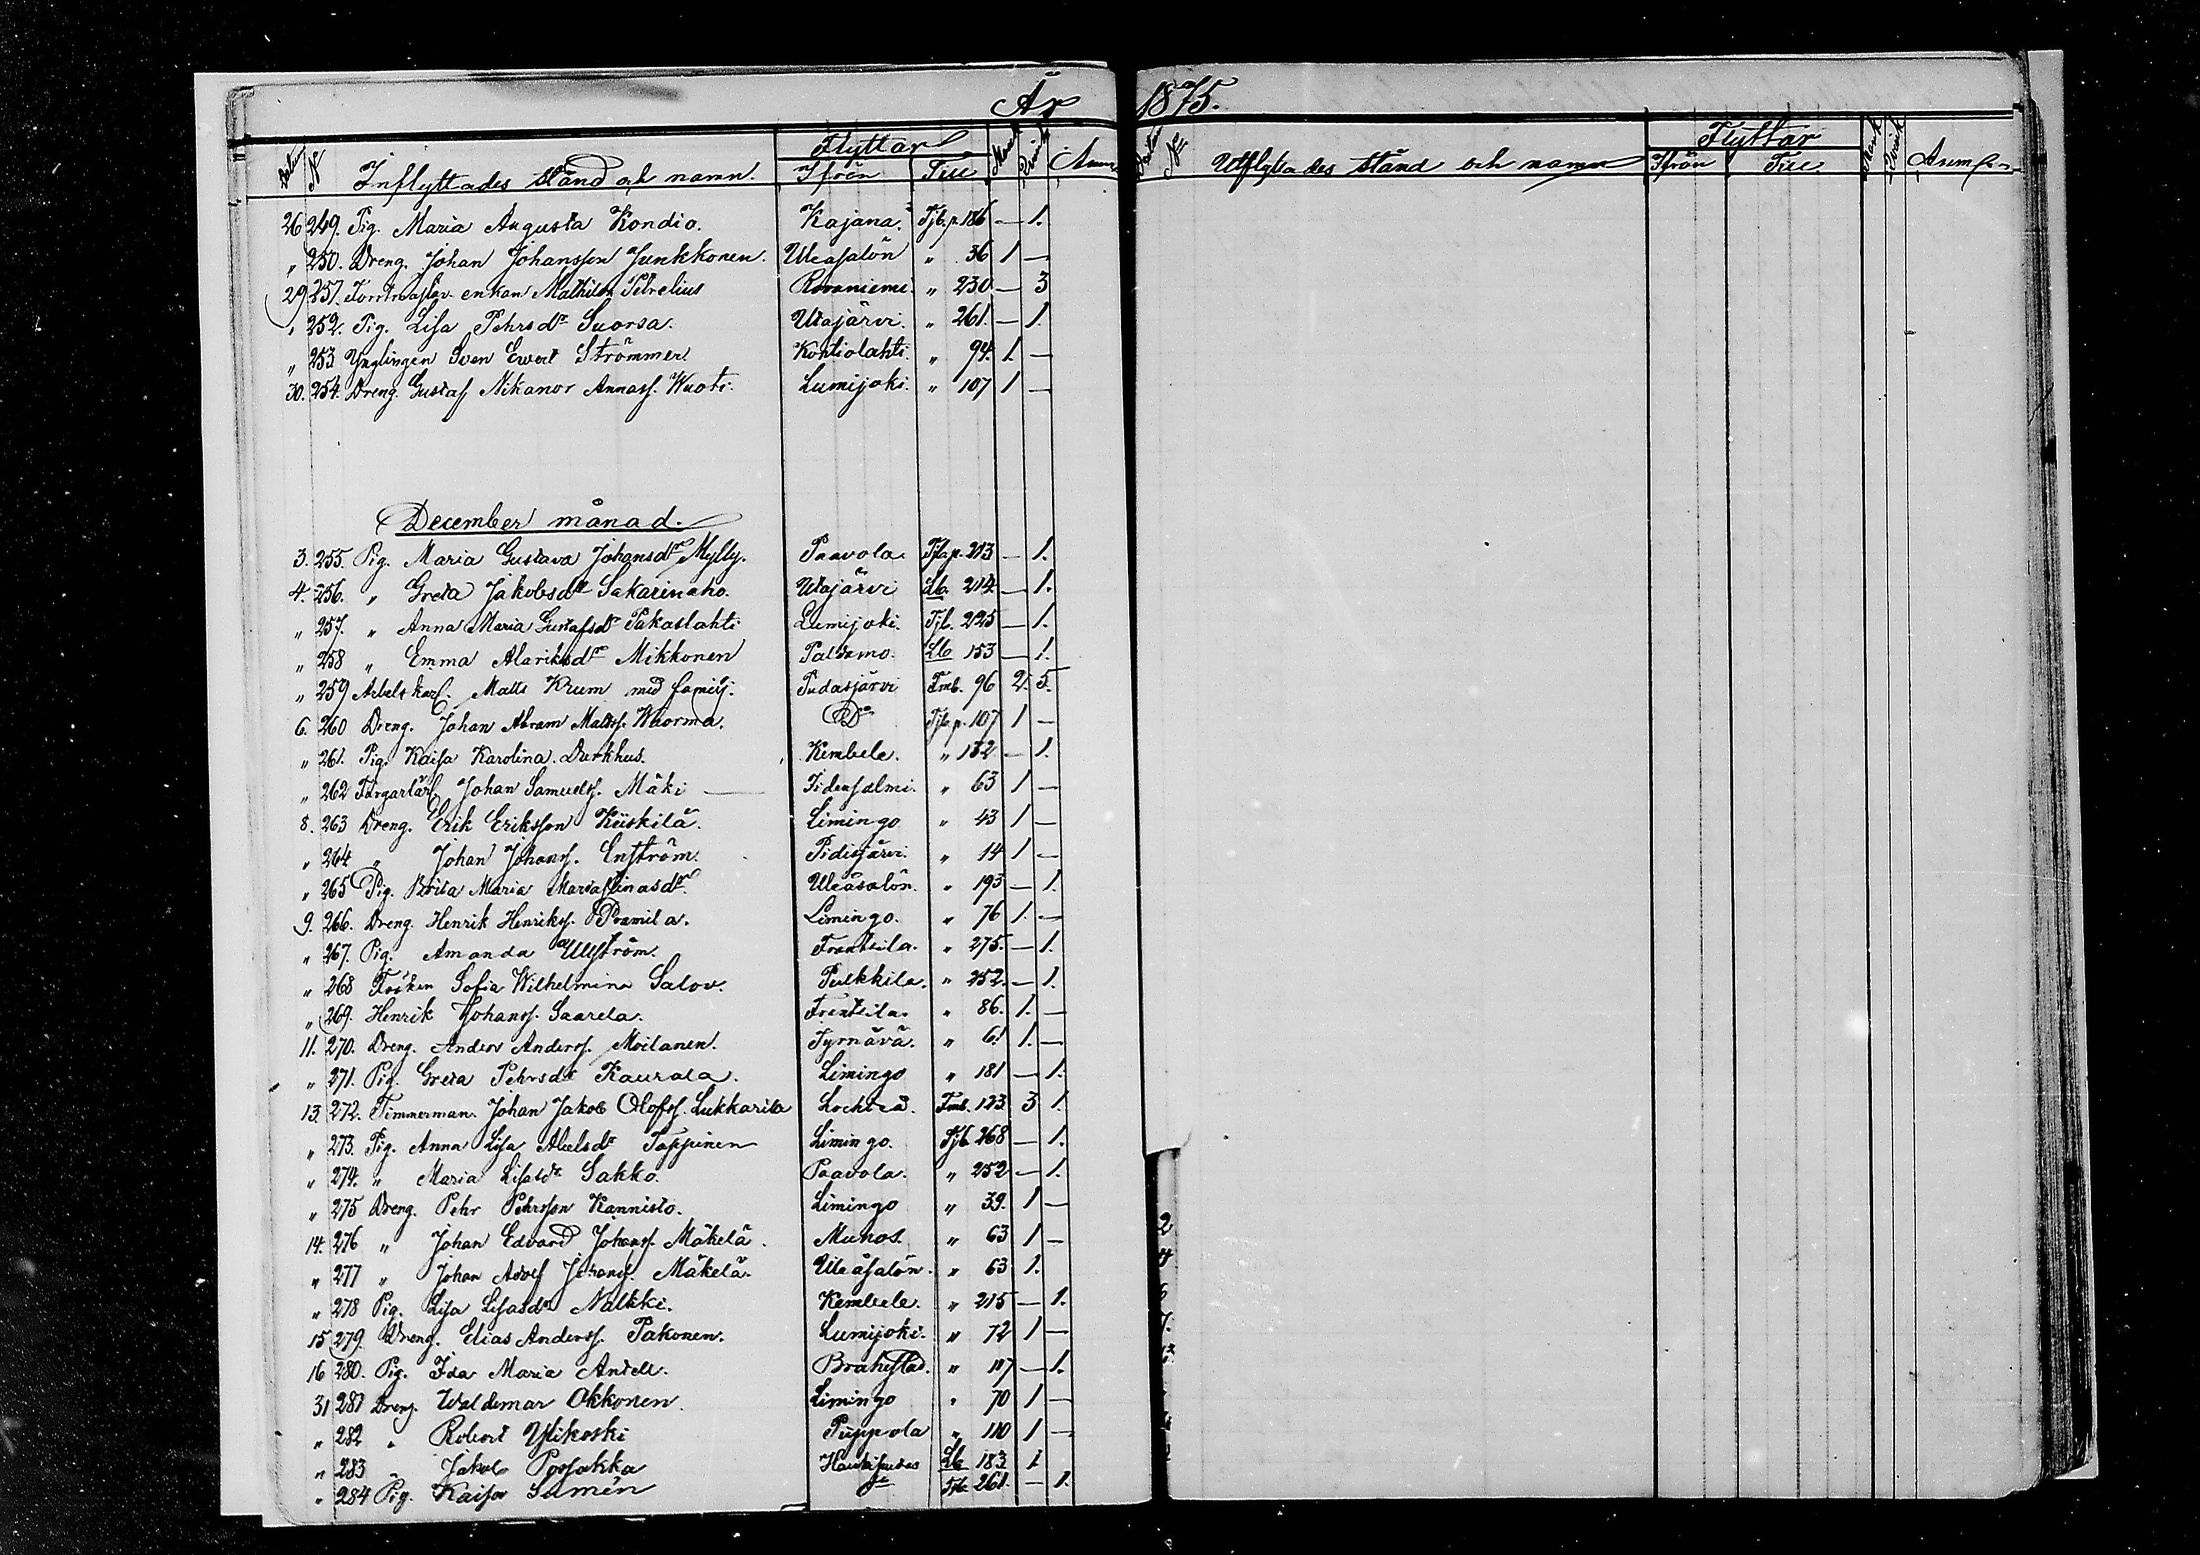 År 1875.
Datum № Inflyttades stånd och namn. Flyttar Ifrån Till Mank. Qvink. Anm
Datum № Utflyttades stånd och namn Flyttar Ifrån Till Mank Qvink Anm
26 249. Pig. Maria Augusta Kondio. Kajana. Tjb. p. 186 — 1.
" 250. Dreng. Johan Johansson Junkkonen. Uleåsalön " 36 1 —
29 251. enkan Mathilda Petrelius Rovaniemi. " 230 — 3
" 252. Pig. Lisa Pehrsdr Suorsa. Utajärvi. " 261. — 1.
" 253 Ynglingen Sven Ewert Strömmer Kontiolahti. " 94. 1. —
30. 254. Dreng. Gustaf Nikanor Annass. Wuoti. Lumijoki. " 107 1 —
December månad.
3. 255. Pig. Maria Gustava Johansdr Mylly. Paavola. Tjb. p. 213 — 1.
4. 256. " Greta Jakobsdr Sakarinaho. Utajärvi Lb. 214. — 1.
" 257. " Anna Maria Gustafsdr Pakaslahti Lumijoki. Tjb. 225 — 1.
" 258 " Emma Alariksdr Mikkonen Paldamo. Lb 153 — 1.
" 259 Arbetskarl. Matts Krum med familj. Pudasjärvi Fmb. 96 2. 5.
6. 260 Dreng. Johan Abram Matss. Wuorma. Do Tjb. p. 107 1 —
" 261. Pig. Kaisa Karolina Durkhus. Kembele. " 132 — 1.
" 262 Johan Samuels. Mäki — Idensalmi. " 63 1 —
8. 263 Dreng. Erik Eriksson Kiiskilä. Limingo " 43 1 —
" 264 " Johan Johanss. Enström. Pidisjärvi. " 14 1 —
" 265 Pig. Brita Maria Mariastinasdr. Uleåsalön. " 193 — 1.
9. 266. Dreng. Henrik Henrikss. Pramila. Limingo. " 76 1. —
" 267. Pig. Amanda Ullström. Frantsila. " 275. — 1.
" 268 Fröken Sofia Wilhelmina Salov. Pulkkila. " 252. — 1.
" 269. Henrik Johanss. Saarela. Frantsila. " 86. 1. —
11. 270. Dreng. Anders Anderss. Moilanen. Tyrnävä. " 61 1. —
" 271. Pig. Greta Pehrsdr Kaurala. Limingo " 181 — 1.
13. 272. Timmerman. Johan Jakob Olofss. Lukkarila Lochteå. Fmb. 123 3 1.
" 273. Pig. Anna Lisa Abelsdr Tappinen Limingo. Tjb. 268 — 1.
" 274. " Maria Lisasdr Sakko. Paavola. " 252 — 1.
" 275 Dreng. Pehr Pehrsson Kannisto. Limingo " 39. 1 —
14. 276 " Johan Edvard Johanss. Mäkelä. Muhos. " 63 1 —
" 277 " Johan Adolf Johanss. Mäkelä. Uleåsalön. " 63 1.
" 278 Pig. Lisa Lisasdr Nalkki. Kembele. " 215 — 1.
15 279. Dreng. Elias Anderss. Pakonen. Lumijoki. " 72 1 —
16 280. Pig. Ida Maria Antell. Brahestad. " 117 — 1.
31 281 Dreng. Waldemar Okkonen. Limingo " 70 1 —
" 282 " Robert Ylikoski Puppola " 110 1 —
" 283 " Jakob Possakka Haukipudas Lb 183 1
" 284 Pig. Kaisa Sumén do Tjb. 261. — 1.